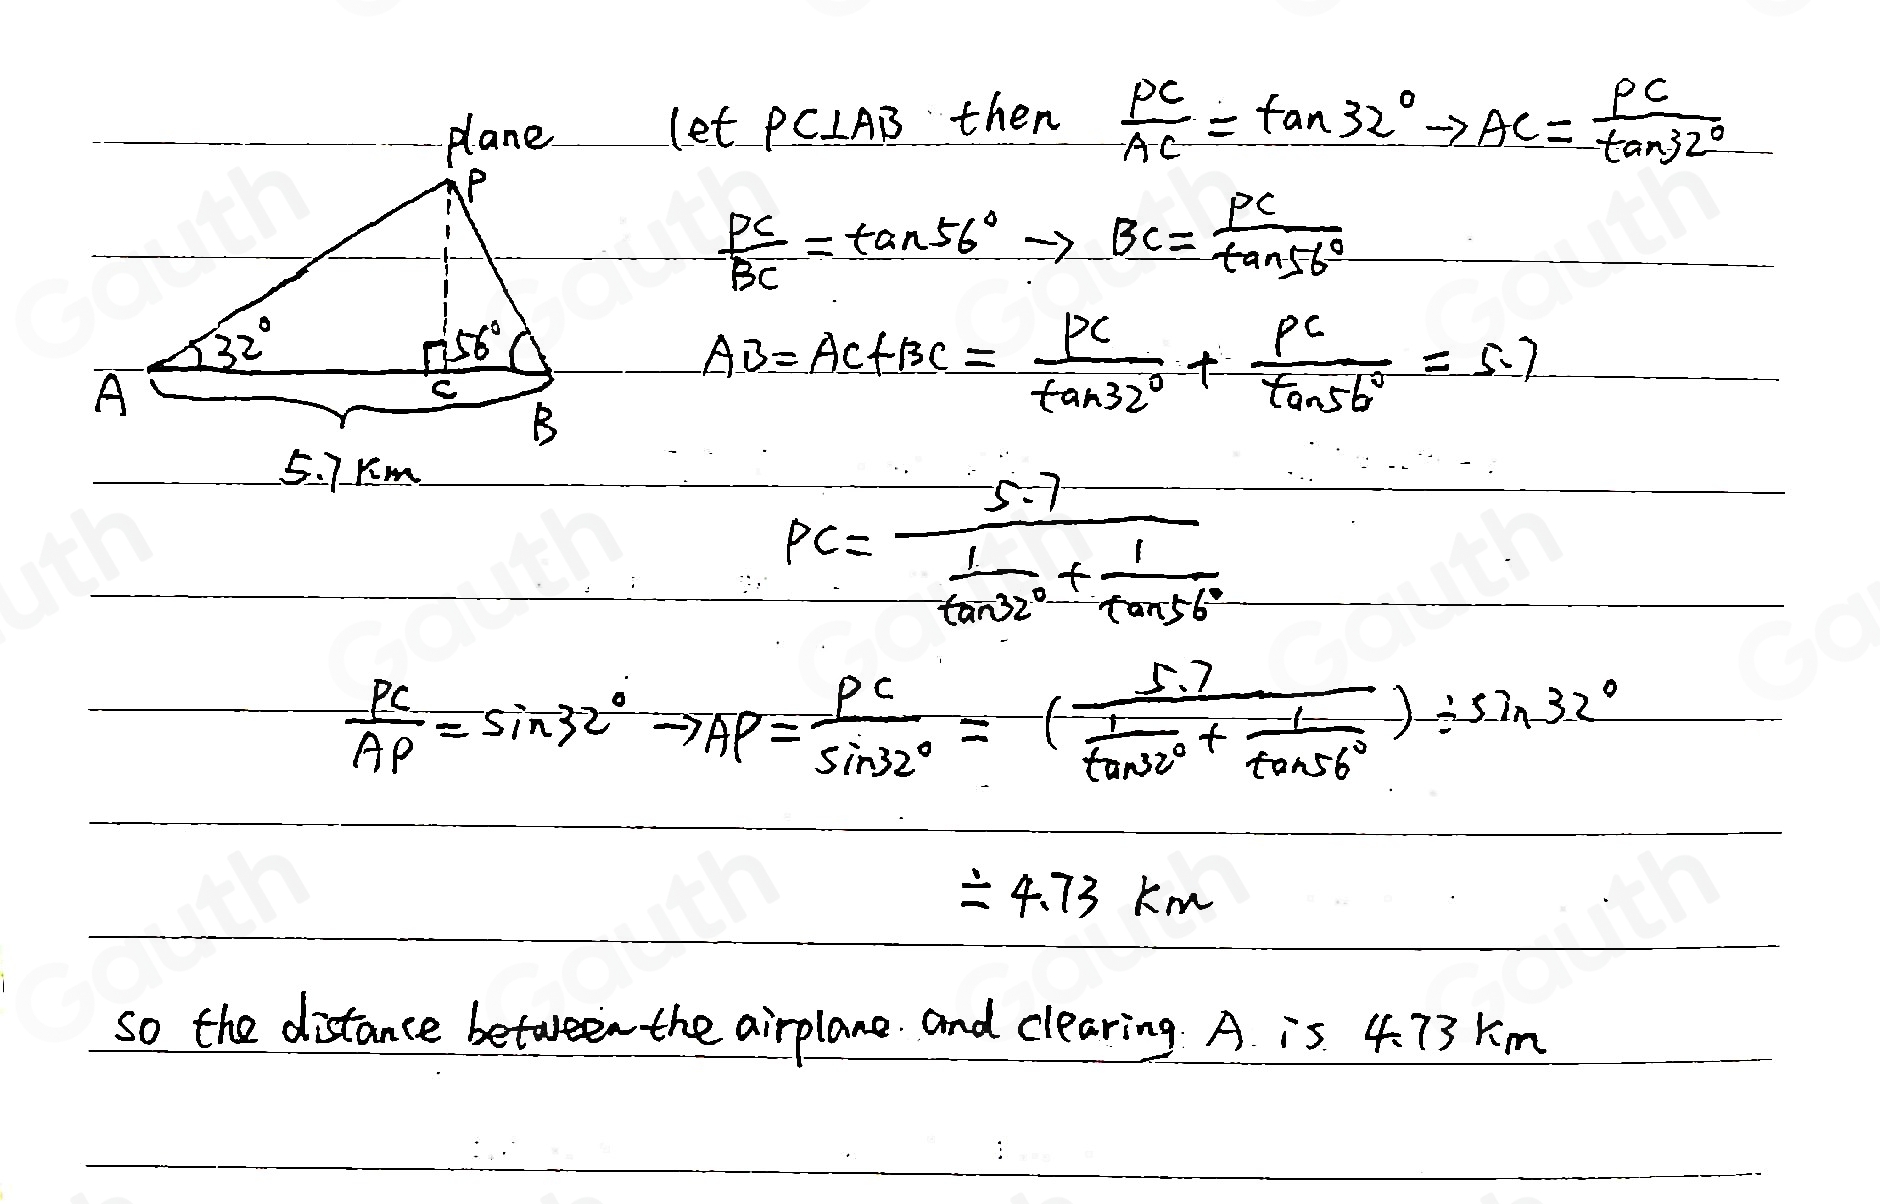 plane
let PC⊥AB then PC/AC = tan32° → AC = PC/tan32°
P
PC/BC = tan56° → BC = PC/tan56°
32°
56°
AB = AC+BC = PC/tan32° + PC/tan56° = 5.7
A
C
B
5.7 Km
PC = 5.7/(1/tan32° + 1/tan56°)
PC/AP = sin32° → AP = PC/sin32° = (5.7/(1/tan32° + 1/tan56°)) ÷ sin32°
≐ 4.73 Km
so the distance between the airplane and clearing A is 4.73 Km
Gauth